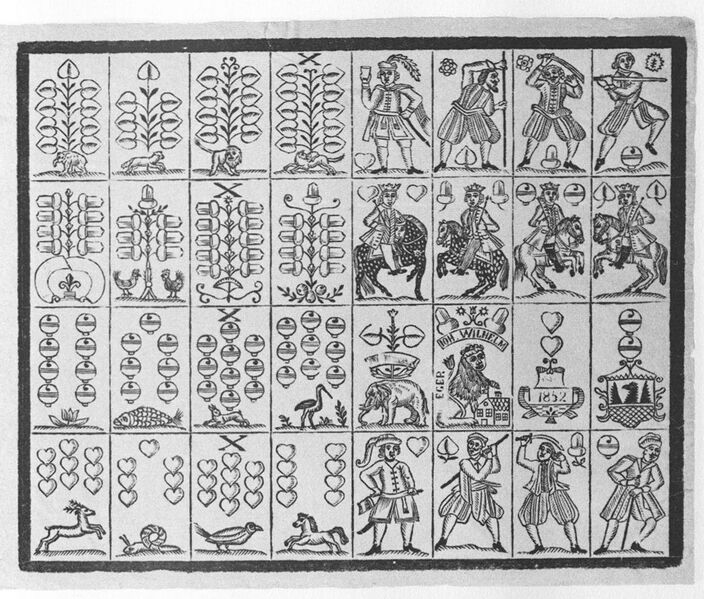 X
IOH. WILHELM
EGER
X
1852
X
X